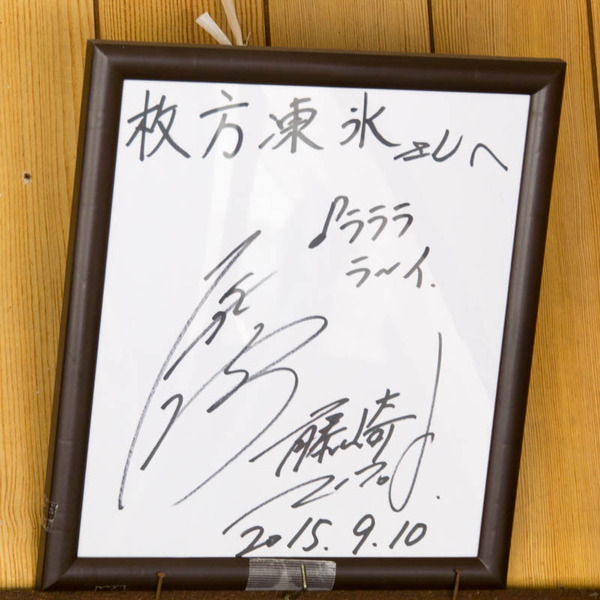 枚方凍氷さんへ
♪ラララ
ラ〜イ.
藤崎
2015.9.10